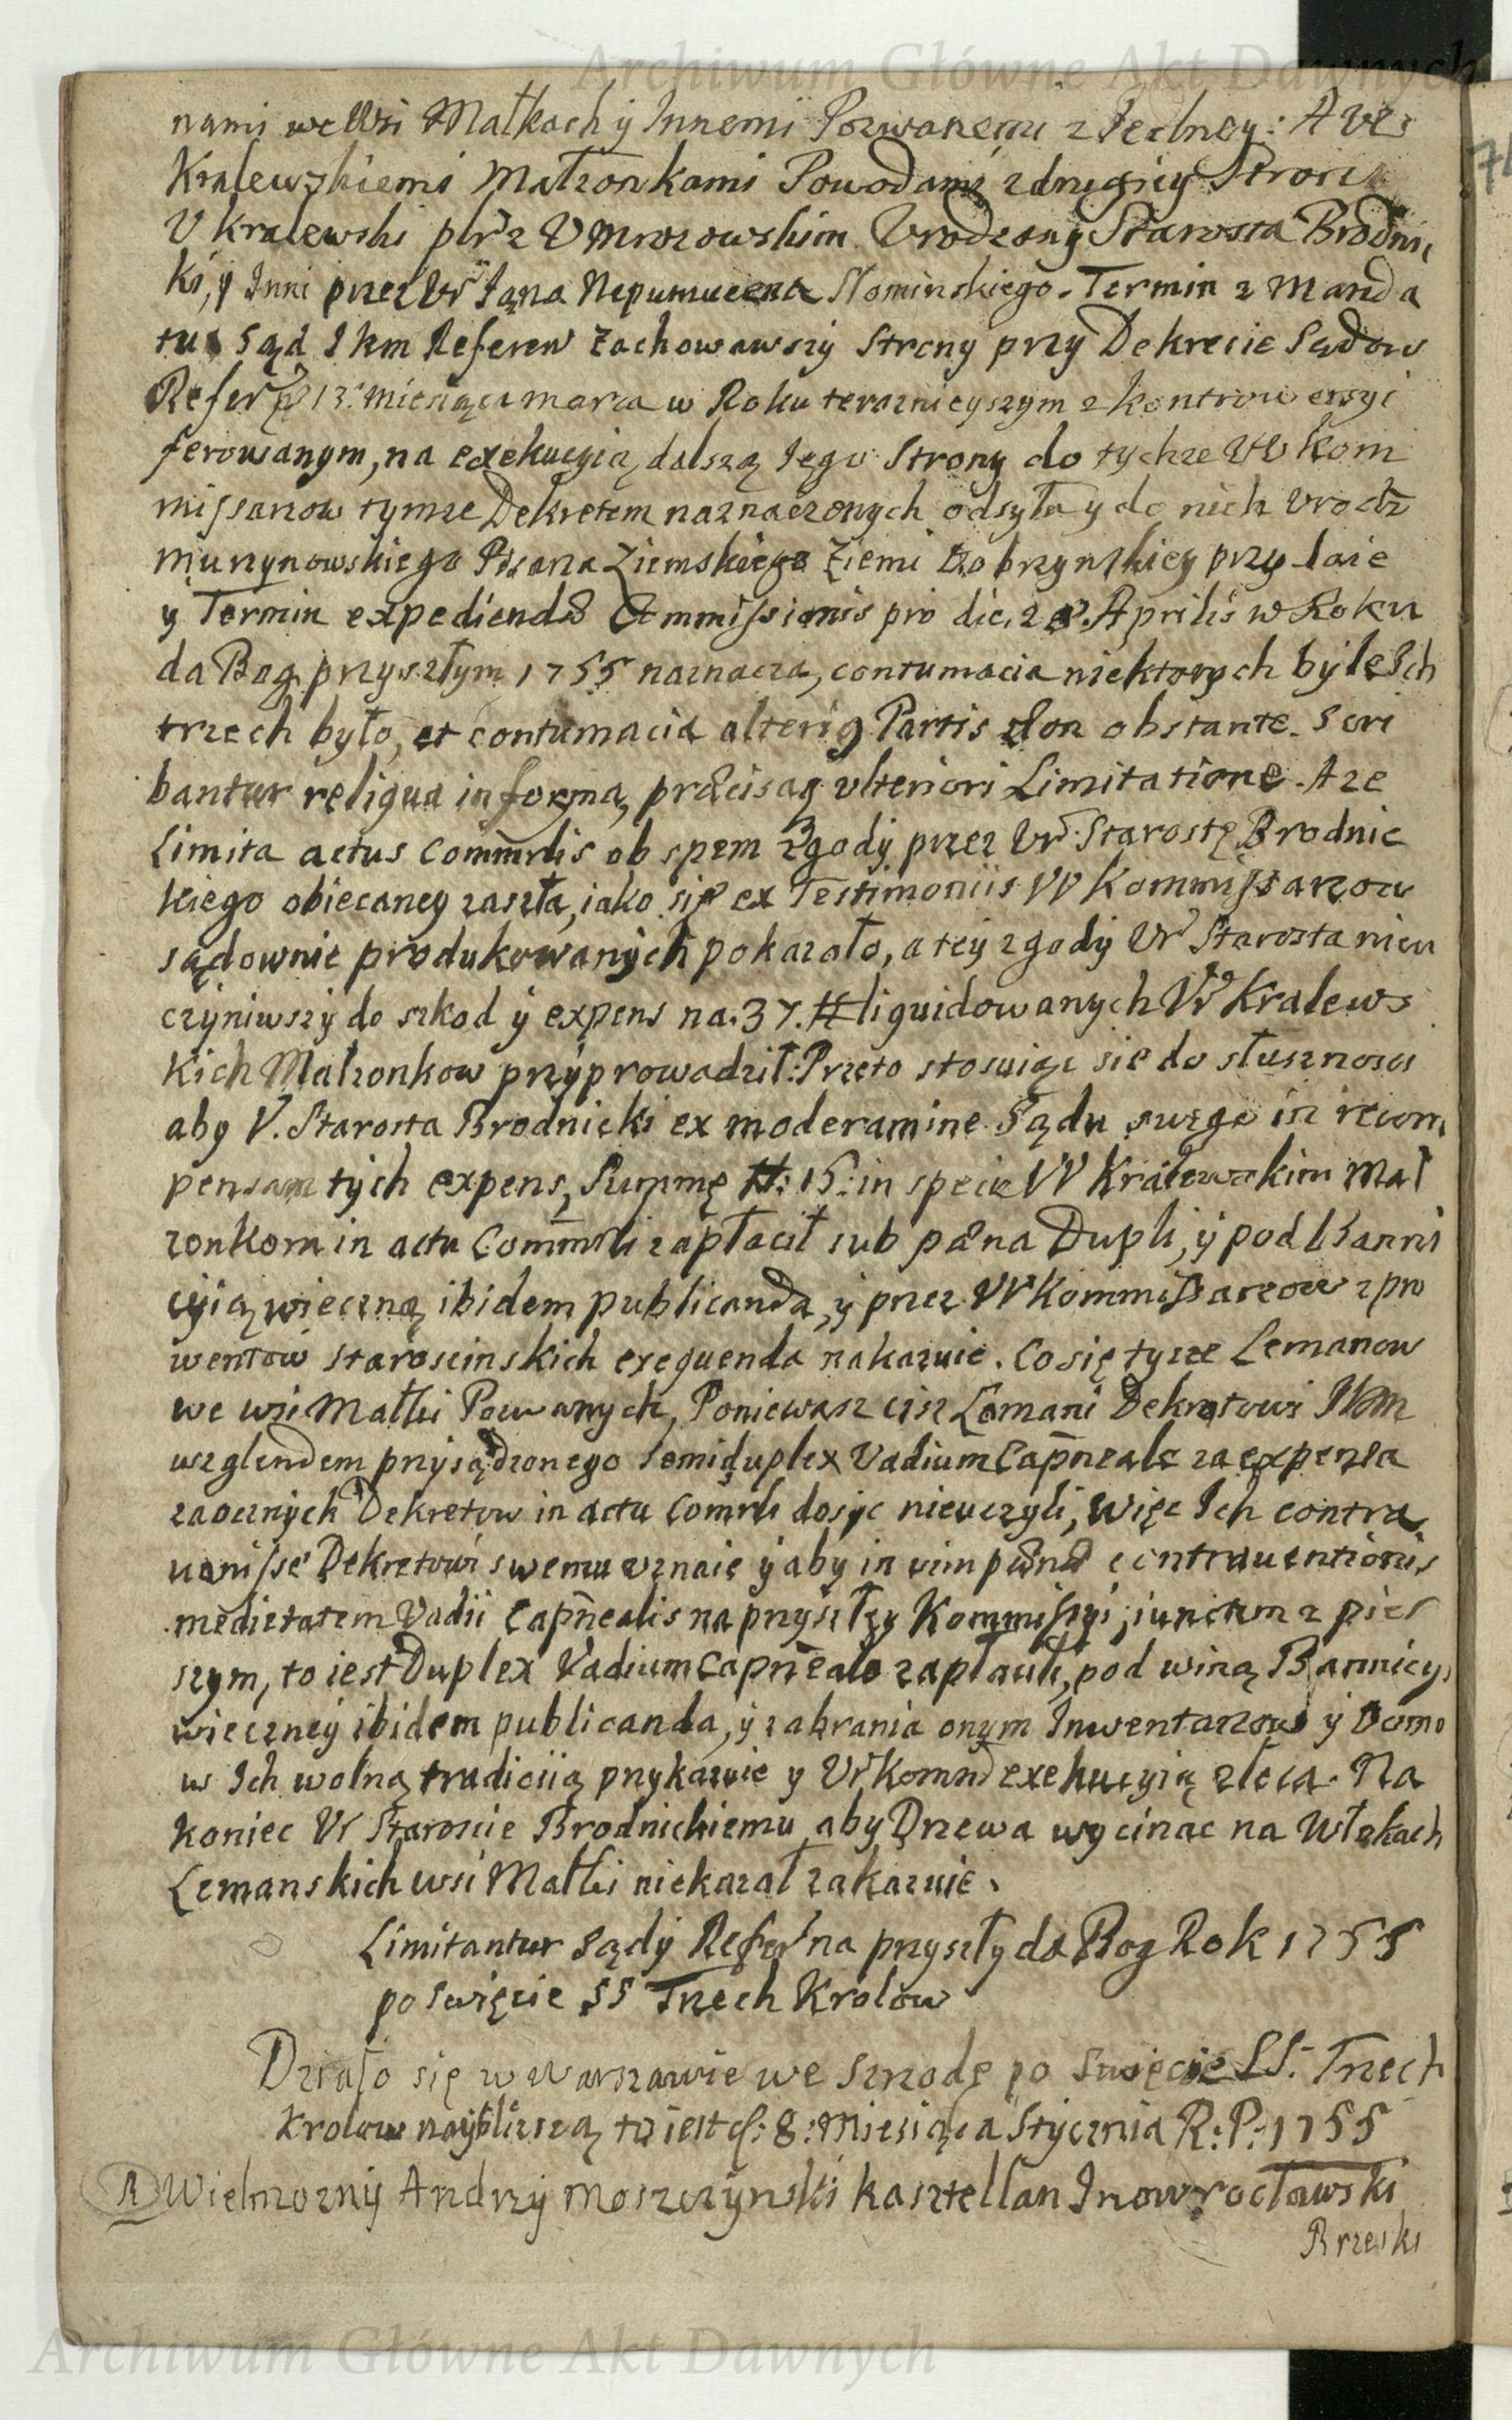 Archiwum Główne Akt Dawnych
nami we Wsi Małkach y Innemi Pozwanemi z Iedney: A Vrs
Kralewskiemi Małzonkami Powodami z drugiey Strony
V Kralewski ptr z V Mrozowskim Vrodzony Starosta Brodnic
ki, y Inni przez Vr Iana Nepumucena Słominskiego. Termin z Manda
tus Sąd I k m Referen zachowawszy Strony przy Dekrecie Sądow
Refer 13: miesiąca marca w Roku teraznieyszym z kontrowersyi
ferowanym, na exekucyią dalszą Iego Strony do tychze W Kom
missarzow tymze Dekretem naznaczonych odsyła y do nich Vrodz
Murzynowskiego Pisarza Ziemskiego Ziemi Dobrzynskiey przydaie
y Termin expediendæ Commissionis pro die 28. Aprilis w Roku
da Bog przyszłym 1755 naznacza, contumacia niektorych byle Ich
trzech było, et contumacia alterius Partis non obstante. Scri
bantur reliqua in forma, præcisaq ulteriori Limitatione. A ze
Limita actus Commrlis ob spem zgody przez Vr Starostę Brodnic
kiego obiecaney zaszła, iako się ex Testimoniis W Kommissarzow
sądownie produkowanych pokazało, a tey zgody Vr Starosta nieu
czyniwszy do szkod y expens na. 37. # liquidowanych Vr Kralews
kich Małzonkow przyprowadził: Przeto stosuiąc sie do słusznosci
aby V. Starosta Brodnicki ex moderamine Sądu swego in recom
pensam tych expens, Summę #: 15: in specie W Kralewskim Mał
zonkom in actu Commrli zapłacił sub pæna Dupli, y pod Banni
cyią wieczną ibidem publicanda, y przez W Kommissarzow z pro
wentow staroscinskich exequenda nakazuie. Co się tycze Lemanow
we wsi Małki Pozwanych, Poniewasz cisz Lemani Dekretowi I k m
wzglendem przysądzonego Semiduplex Vadium Capneale za expensa
zaocznych Dekretow in actu Comrli dosyc nieuczyli, więc Ich contra
venisse Dekretowi swemu uznaie y aby in vim pænæ contraventionis
medietatem Vadii Capnealis na przyszłey Kommissyi, iunctim z pier
szym, to iest Duplex Vadium Capneale zapłacili, pod winą Bannicyi
wieczney ibidem publicanda, y zabrania onym Inwentarzow y Domo
w Ich wolną tradiciią przykazuie y Vr Komm exekucyią zleca. Na
koniec Vr Staroscie Brodnickiemu aby Drzewa wycinac na Włokach
Lemanskich wsi Małki niekazał zakazuie.
Limitantur Sądy Refer na przyszły da Bog Rok 1755
po Swięcie SS Trzech Krolow
Działo się w Warszawie we Szrodę po Swięcie SS. Trzech
Krolow nayblizszą to iest d: 8: Miesiąca Stycznia R: P: 1755
Wielmozny Andrzy Moszczynski Kasztellan Inowrocławski
Brzeski
Archiwum Główne Akt Dawnych